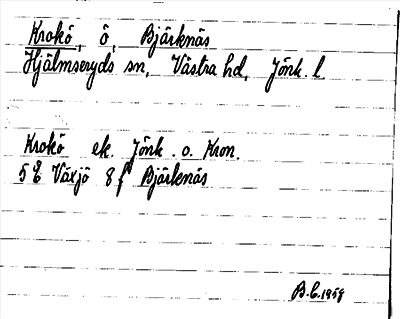 Krokö, ö, Bjärknäs
Hjälmseryds sn, Västra hd, Jönk. l
Krokö ek. Jönk. o. Kron.
5E Växjö 8f Bjärknäs
B.C. 1958